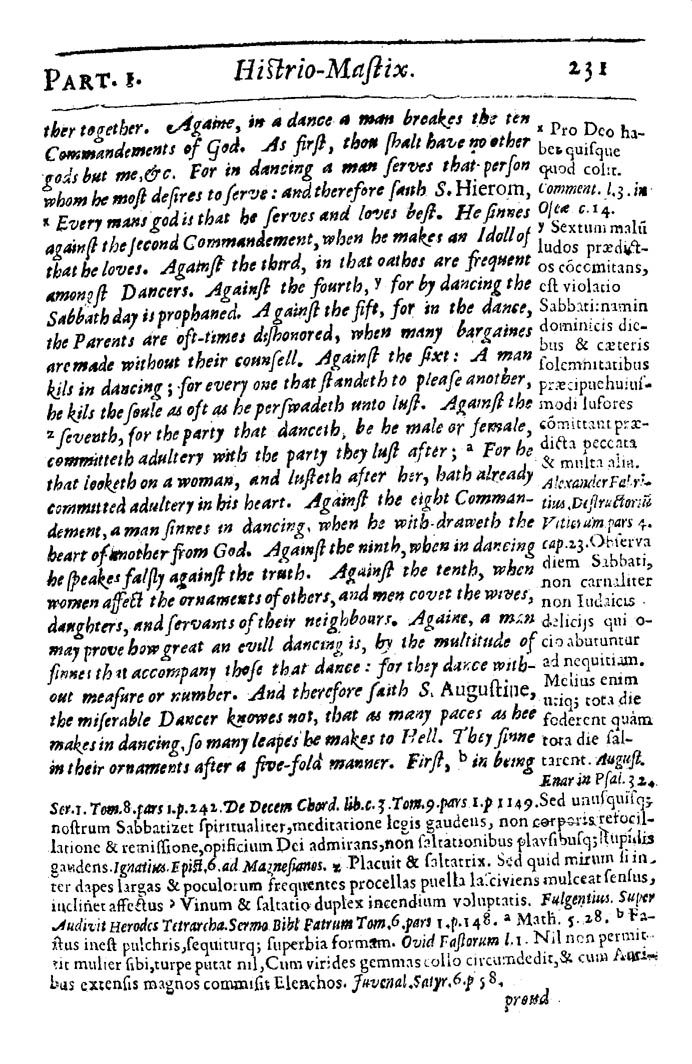 PART. 1. Histrio-Mastix. 231
ther together. Againe, in a dance a man breakes the ten
Commandements of God. As first, thou shalt have no other
gods but me, &c. For in dancing a man serves that person
whom he most desires to serve : and therefore saith S. Hierom,
x Every mans god is that he serves and loves best. He sinnes
against the second Commandement, when he makes an Idoll of
that he loves. Against the third, in that oathes are frequent
amongst Dancers. Against the fourth, y for by dancing the
Sabbath day is prophaned. Against the fift, for in the dance,
the Parents are oft-times dishonored, when many bargaines
are made without their counsell. Against the sixt : A man
kils in dancing ; for every one that standeth to please another,
he kils the soule as oft as he perswadeth unto lust. Against the
z seventh, for the party that danceth, be he male or female,
committeth adultery with the party they lust after ; a For he
that looketh on a woman, and lusteth after her, hath already
committed adultery in his heart. Against the eight Comman-
dement, a man sinnes in dancing, when he with-draweth the
heart of another from God. Against the ninth, when in dancing
he speakes falsly against the truth. Against the tenth, when
women affect the ornaments of others, and men covet the wives,
daughters, and servants of their neighbours. Againe, a man
may prove how great an evill dancing is, by the multitude of
sinnes that accompany those that dance : for they dance with-
out measure or number. And therefore saith S. Augustine,
the miserable Dancer knowes not, that as many paces as hee
makes in dancing, so many leapes he makes to Hell. They sinne
in their ornaments after a five-fold manner. First, b in being
x Pro Deo ha-
bet quisque
quod colit.
Comment. l. 3. in
Oseæ c. 14.
y Sextum malũ
ludos prædict-
os cõcomitans,
est violatio
Sabbati: nam in
dominicis die-
bus & cæteris
solemnitatibus
præcipue huius-
modi lusores
cõmittant præ-
dicta peccata
& multa alia.
Alexander Fabri-
tius, Destructoriũ
Vitiorum pars 4.
cap. 23. Observa
diem Sabbati,
non carnaliter
non Iudaicis
delicijs qui o-
cio abutuntur
ad nequitiam.
Melius enim
utiq; tota die
foderent quàm
tota die sal-
tarent. August.
Enar in Psal. 32.
Ser. 1. Tom. 8. pars 1. p. 242. De Decem Chord. lib. c. 3. Tom. 9. pars 1. p 1149. Sed unusquisq;
nostrum Sabbatizet spiritualiter, meditatione legis gaudens, non corporis refocil-
latione & remissione, opificium Dei admirans, non saltationibus plavsibusq; stupidis
gaudens. Ignatius. Epist, 6. ad Magnesianos. z Placuit & saltatrix. Sed quid mirum si in-
ter dapes largas & poculorum frequentes procellas puella lasciviens mulceat sensus,
inclinet affectus ? Vinum & saltatio duplex incendium voluptatis. Fulgentius. Super
Audivit Herodes Tetrarcha. Sermo Bibl Patrum Tom. 6. pars 1. p. 148. a Math. 5. 28. b Fa-
stus inest pulchris, sequiturq; superbia formam. Ovid Fastorum l. 1. Nil non permit-
tit mulier sibi, turpe putat nil, Cum virides gemmas collo circumdedit, & cum Auri-
bus extensis magnos commisit Elenchos. Juvenal. Satyr. 6. p 58.
proud